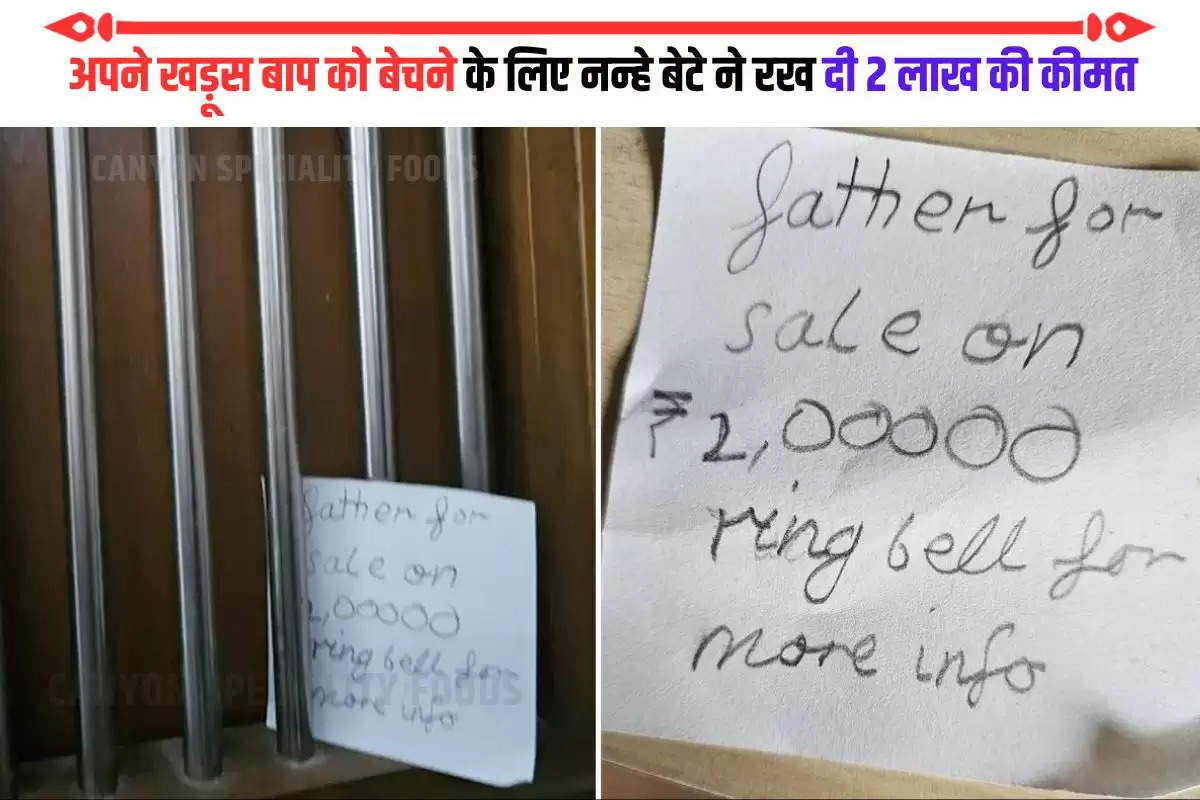 अपने खड़ूस बाप को बेचने के लिए नन्हे बेटे ने रख दी 2 लाख की कीमत
CANYON SPECIALITY FOODS
father for
sale on
2,00000
ring bell for
more info
CANYON SPECIALITY FOODS
father for
sale on
₹2,00000
ring bell for
more info